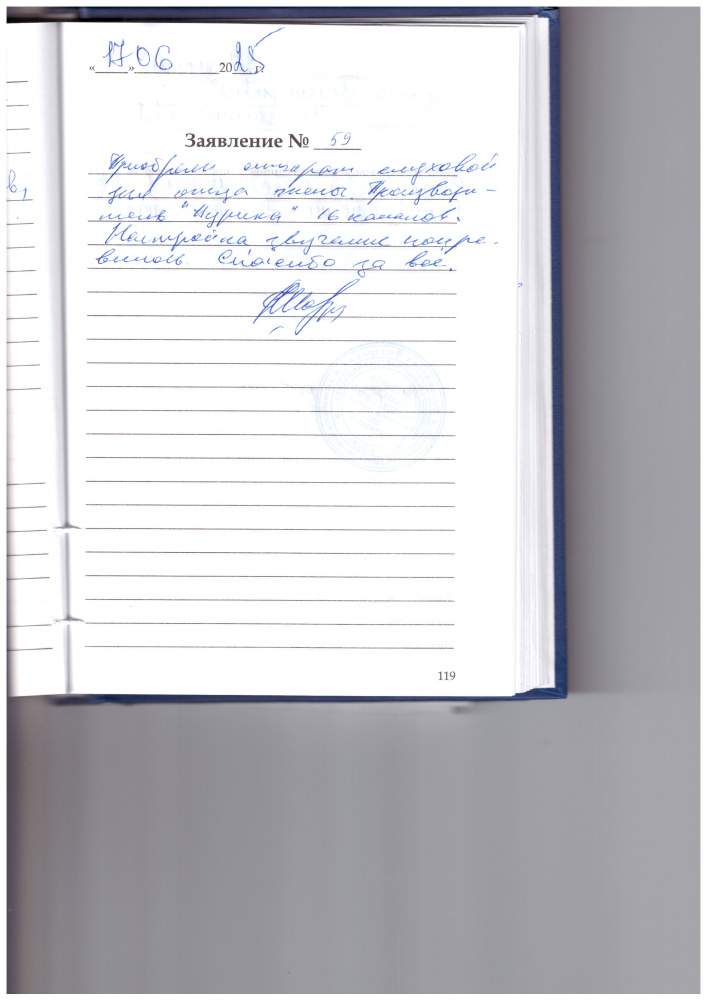 «17» 06 2025 г.
Заявление № 59
Приобрели аппарат слуховой
для отца жены. Производи-
тель "Аурика" 16 каналов.
Настройка звучание понра-
вилось. Спасибо за все.
в,
119